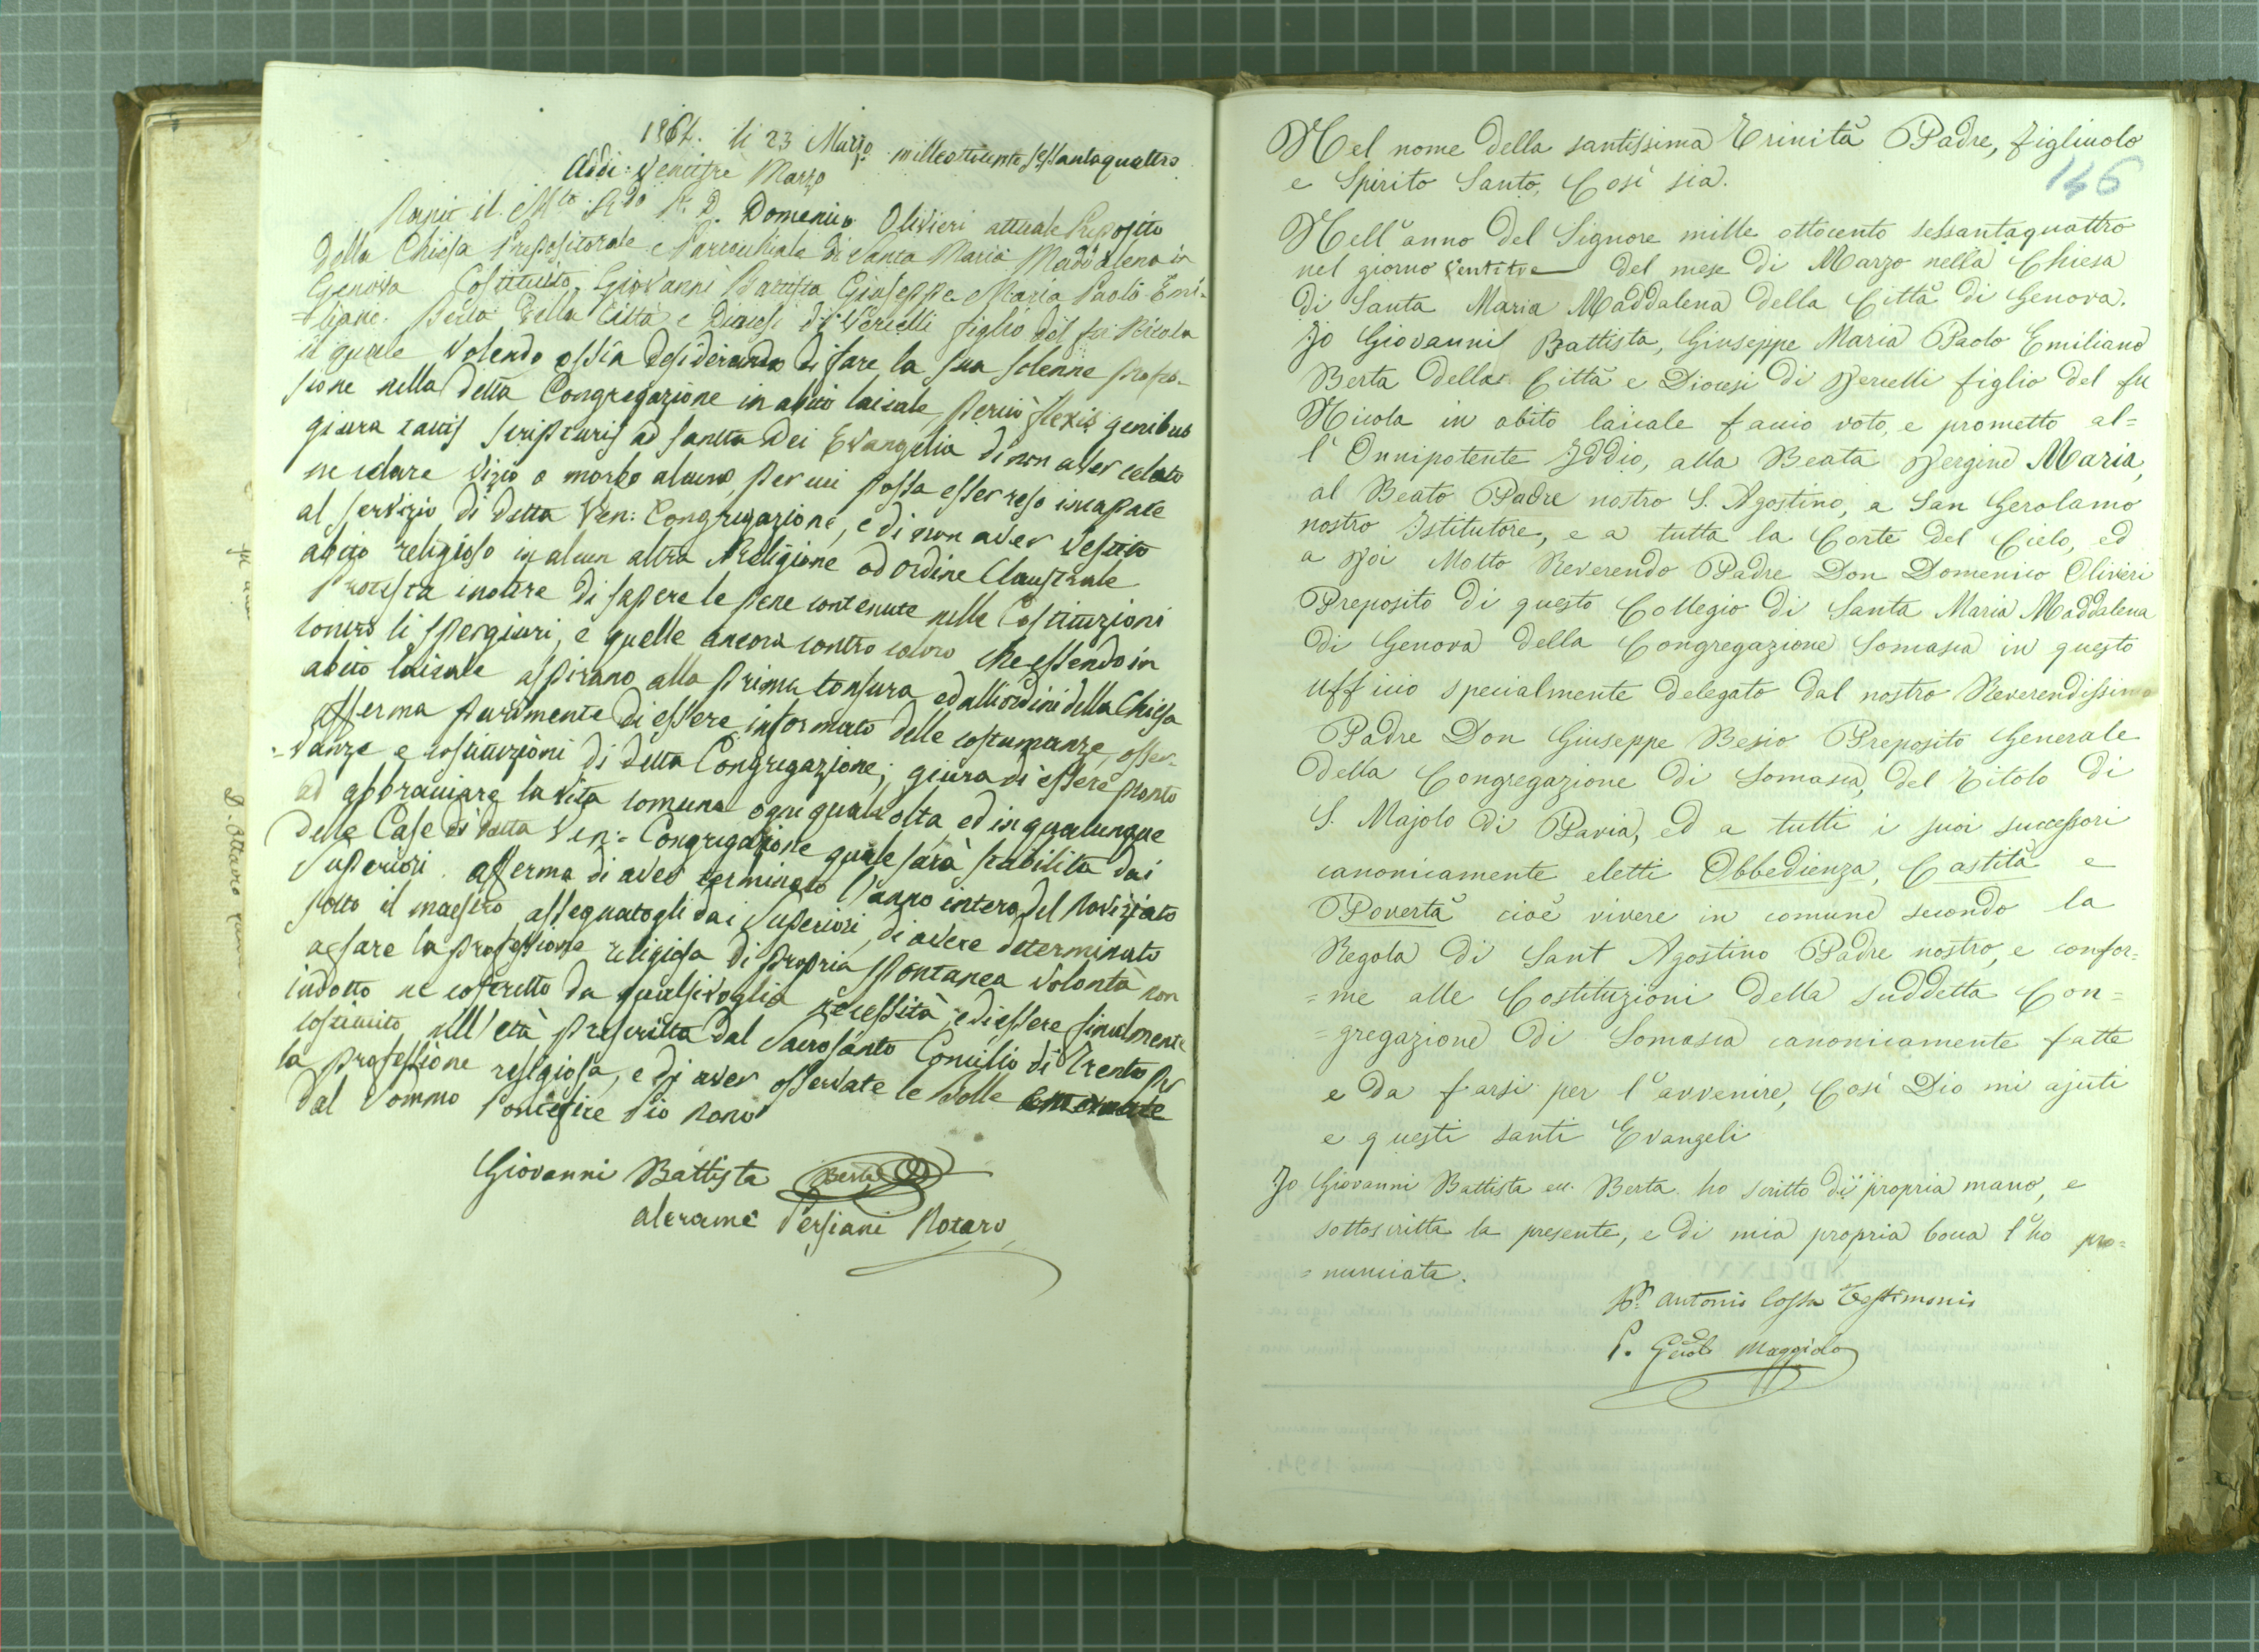 1864. li 23 Marzo
Addi: Ventitre Marzo milleottocento sessantaquattro
il M.to R.do P. D. Domenico Olivieri attuale Preposito
della Chiesa Prepositorale e Parrocchiale di Santa Maria Maddalena in
Genova Costituito Giovanni Battista Giuseppe Maria Paolo Emi-
=liano Berta della Città e Diocesi di Vercelli figlio del fu Nicola
il quale volendo ossia desiderando di fare la sua solenne profes-
sione nella detta Congregazione in abito laicale, perciò flexis genibus
giura tactis scripturis ad sancta Dei Evangelia di non aver celato
ne celare vizio o morbo alcuno, per cui possa esser reso incapace
al servizio di detta Ven: Congregazione, e di non aver vestito
abito religioso in alcun altra Religione od ordine Claustrale
Protesta inoltre di sapere le pene contenute nelle Costituzioni
contro li spergiuri, e quelle ancora contro coloro che essendo in
abito laicale aspirano alla prima tonsura ed alli ordini della Chiesa
Afferma parimente di essere informato delle costumanze, osser-
=vanze e costituzioni di detta Congregazione; giura di essere pronto
ad abbracciare la vita comune ogni qualvolta ed in qualunque
delle Case di detta Ven: Congregazione quale sarà stabilita dai
Superiori. afferma di aver terminato l'anno intero del noviziato
sotto il maestro assegnatogli dai Superiori, di avere determinato
a fare la professione religiosa di propria spontanea volontà non
indotto ne costretto da qualsivoglia necessità, e di essere finalmente
costituito nell'età prescritta dal Sacrosanto Concilio di Trento per
la professione religiosa, e di aver osservate le Bolle
dal Sommo Pontefice Pio Nono
Giovanni Battista Berta
Alerame Persiani Notaro
146
Nel nome della santissima Trinità Padre, figliuolo
e Spirito Santo, Così sia.
Nell'anno del Signore mille ottocento sessantaquattro
nel giorno ventitre del mese di Marzo nella Chiesa
di Santa Maria Maddalena della Città di Genova.
Io Giovanni Battista, Giuseppe Maria Paolo Emiliano
Berta della Città e Diocesi di Vercelli figlio del fu
Nicola in abito laicale faccio voto, e prometto al=
l'Onnipotente Iddio, alla Beata Vergine Maria,
al Beato Padre nostro S. Agostino, a San Gerolamo
nostro Istitutore, e a tutta la Corte del Cielo, ed
a Voi Molto Reverendo Padre Don Domenico Oliveri
Preposito di questo Collegio di Santa Maria Maddalena
di Genova della Congregazione Somasca in questo
ufficio specialmente delegato dal nostro Reverendissimo
Padre Don Giuseppe Besio Preposito Generale
della Congregazione di Somasca, del Titolo di
S. Majolo di Pavia, ed a tutti i suoi successori
canonicamente eletti Obbedienza, Castità e
Povertà cioè vivere in comune secondo la
Regola di Sant Agostino Padre nostro, e confor=
=me alle Costituzioni della suddetta Con=
=gregazione di Somasca canonicamente fatte
e da farsi per l'avvenire, Così Dio mi ajuti
e questi santi Evangeli
Io Giovanni Battista ecc. Berta ho scritto di propria mano, e
sottoscritta la presente, e di mia propria bocca l'ho pro=
=nunciata.
Antonio Cossa Testimonio
P. Maggiolo